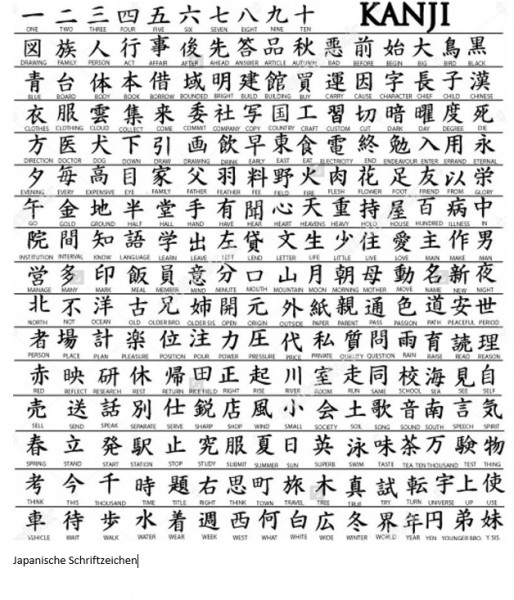 一 二 三 四 五 六 七 八 九 十 KANJI
ONE TWO THREE FOUR FIVE SIX SEVEN EIGHT NINE TEN
図 族 人 行 事 後 先 答 品 秋 悪 前 始 大 鳥 黒
DRAWING FAMILY PERSON ACT AFFAIR AFTER AHEAD ANSWER ARTICLE AUTUMN BAD BEFORE BEGIN BIG BIRD BLACK
青 台 体 本 借 域 明 建 館 買 運 因 字 長 子 漢
BLUE BOARD BODY BOOK BORROW BOUNDED BRIGHT BUILD BUILDING BUY CARRY CAUSE CHARACTER CHIEF CHILD CHINESE
衣 服 雲 集 来 委 社 写 国 工 習 切 暗 曜 度 死
CLOTHES CLOTHING CLOUD COLLECT COME COMMIT COMPANY COPY COUNTRY CRAFT CUSTOM CUT DARK DAY DEGREE DIE
方 医 犬 下 引 画 飲 早 東 食 電 終 勉 入 用 永
DIRECTION DOCTOR DOG DOWN DRAW DRAWING DRINK EARLY EAST EAT ELECTRICITY END ENDEAVOUR ENTER ERRAND ETERNAL
夕 毎 高 目 家 父 羽 料 野 火 肉 花 足 友 以 栄
EVENING EVERY EXPENSIVE EYE FAMILY FATHER FEATHER FEE FIELD FIRE FLESH FLOWER FOOT FRIEND FROM GLORY
午 金 地 半 堂 手 有 聞 心 天 重 持 屋 百 病 中
GO GOLD GROUND HALF HALL HAND HAVE HEAR HEART HEAVENS HEAVY HOLD HOUSE HUNDRED ILLNESS IN
院 間 知 語 学 出 左 貸 文 生 少 住 愛 主 作 男
INSTITUTION INTERVAL KNOW LANGUAGE LEARN LEAVE LEFT LEND LETTER LIFE LITTLE LIVE LOVE MAIN MAKE MAN
営 多 印 飯 員 意 分 口 山 月 朝 母 動 名 新 夜
MANAGE MANY MARK MEAL MEMBER MIND MINUTE MOUTH MOUNTAIN MOON MORNING MOTHER MOVE NAME NEW NIGHT
北 不 洋 古 兄 姉 開 元 外 紙 親 通 色 道 安 世
NORTH NOT OCEAN OLD OLDER BRO. OLDER SIS. OPEN ORIGIN OUTSIDE PAPER PARENT PASS PASSION PATH PEACEFUL PERIOD
者 場 計 楽 位 注 力 圧 代 私 質 問 雨 育 読 理
PERSON PLACE PLAN PLEASURE POSITION POUR POWER PRESSURE PRICE PRIVATE QUALITY QUESTION RAIN RAISE READ REASON
赤 映 研 休 帰 田 正 起 川 室 走 同 校 海 見 自
RED REFLECT RESEARCH REST RETURN RICE FIELD RIGHT RISE RIVER ROOM RUN SAME SCHOOL SEA SEE SELF
売 送 話 別 仕 鋭 店 風 小 会 土 歌 音 南 言 気
SELL SEND SPEAK SEPARATE SERVE SHARP SHOP WIND SMALL SOCIETY SOIL SONG SOUND SOUTH SPEECH SPIRIT
春 立 発 駅 止 究 服 夏 日 英 泳 味 茶 万 験 物
SPRING STAND START STATION STOP STUDY SUBMIT SUMMER SUN SUPERB SWIM TASTE TEA TEN THOUSAND TEST THING
考 今 千 時 題 右 思 町 旅 木 真 試 転 宇 上 使
THINK THIS THOUSAND TIME TITLE RIGHT THINK TOWN TRAVEL TREE TRUE TRY TURN UNIVERSE UP USE
車 待 歩 水 着 週 西 何 白 広 冬 界 年 円 弟 妹
VEHICLE WAIT WALK WATER WEAR WEEK WEST WHAT WHITE WIDE WINTER WORLD YEAR YEN YOUNGER BRO. Y. SIS.
Japanische Schriftzeichen